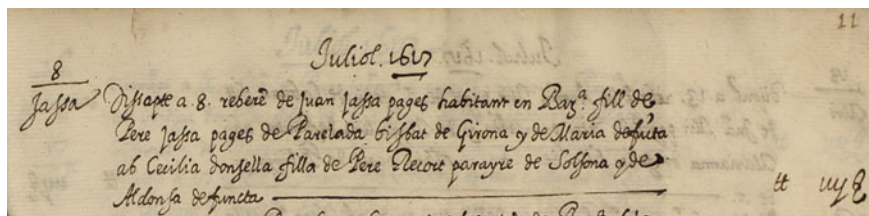 11
Juliol. 1617
8
Jassa
Dissapte a 8. reberẽ de Juan Jassa pages habitant en Barª. fill de
Pere Jassa pages de Parelada bisbat de Girona y de Maria defũta
ab Cecilia donsella filla de Pere Recort parayre de Solsona y de
Aldonsa defuncta
tt